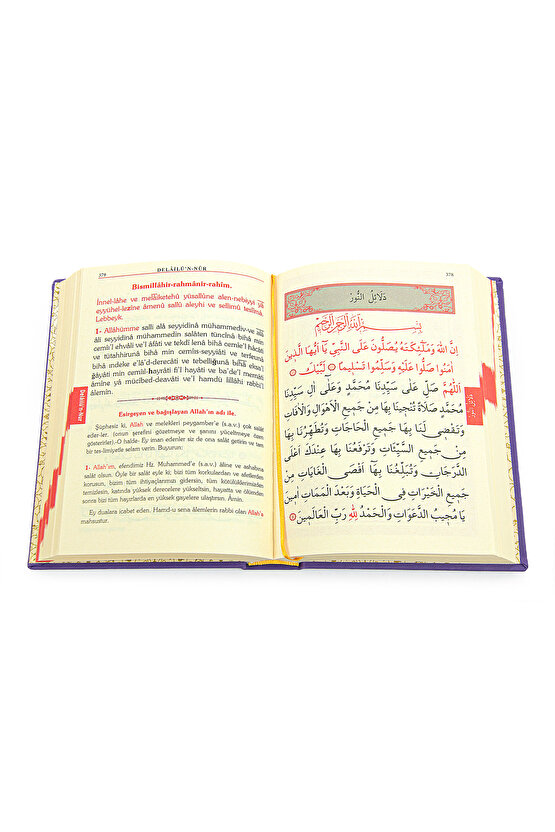 379 DELÂİLÜ'N-NÛR
Bismillâhir-rahmânir-rahîm.
İnnel-lâhe ve melâiketehû yüsallûne alen-nebiyyi yâ
eyyühel-lezîne âmenû sallû aleyhi ve sellimû teslîmâ.
Lebbeyk.
1- Allâhümme salli alâ seyyidinâ muhammediv-ve alâ
âli seyyidinâ muhammedin salâten tüncînâ bihâ min
cemîi'l ehvâli ve'l âfâti ve tekdî lenâ bihâ cemîe'l hâcâti
ve tütahhirunâ bihâ min cemîıs-seyyiâti ve terfeunâ
bihâ ındeke e'lâ'd-derecâti ve tebelliğunâ bihâ eksa'l
ğâyâti min cemîil-hayrâti fi'l hayâti ve ba'de'l memâti
âmîne yâ mücîbed-deavâti ve'l hamdü lillâhi rabbi'l
âlemîn.
Esirgeyen ve bağışlayan Allah'ın adı ile.
Şüphesiz ki, Allah ve melekleri peygamber'e (s.a.v.) çok salât
eder-ler. (onun şerefini gözetmeye ve şanını yüceltmeye özen
gösterirler).-O halde- Ey iman edenler siz de ona salât getirin ve tam
bir tes-limiyetle selam verin. Buyurun:
1- Allah'ım, efendimiz Hz. Muhammed'e (s.a.v.) âline ve ashabına
salât olsun. Öyle bir salât eyle ki; bizi tüm korkulardan ve afetlerden
korusun, bizim tüm ihtiyaçlarımızı gidersin, tüm kötülüklerimizden
temizlesin, katında yüksek derecelere yükseltsin, hayatta ve ölümden
sonra bizi tüm hayırlarda en yüksek gayelere ulaştırsın. Âmin.
Ey dualara icabet eden. Hamd-u sena âlemlerin rabbi olan Allah'a
mahsustur.
Delâilü'n-Nûr
378
دَلَائِلُ النُّورْ
بِسْمِ اللهِ الرَّحْمٰنِ الرَّحِيمِ
إِنَّ اللهَ وَمَلٰئِكَتَهُ يُصَلُّونَ عَلَى النَّبِيِّ يَا أَيُّهَا الَّذِينَ
اٰمَنُوا صَلُّوا عَلَيْهِ وَسَلِّمُوا تَسْلِيمًا ۞ لَبَّيْكَ
اَللّٰهُمَّ صَلِّ عَلَى سَيِّدِنَا مُحَمَّدٍ وَعَلَى اٰلِ سَيِّدِنَا
مُحَمَّدٍ صَلَاةً تُنْجِينَا بِهَا مِنْ جَمِيعِ الْأَهْوَالِ وَالْاٰفَاتِ
وَتَقْضِى لَنَا بِهَا جَمِيعَ الْحَاجَاتِ وَتُطَهِّرُنَا بِهَا
مِنْ جَمِيعِ السَّيِّئَاتِ وَتَرْفَعُنَا بِهَا عِنْدَكَ أَعْلَى
الدَّرَجَاتِ وَتُبَلِّغُنَا بِهَا أَقْصَى الْغَايَاتِ مِنْ
جَمِيعِ الْخَيْرَاتِ فِى الْحَيَاةِ وَبَعْدَ الْمَمَاتِ اٰمِينَ
يَا مُجِيبَ الدَّعَوَاتِ وَالْحَمْدُ لِلّٰهِ رَبِّ الْعَالَمِينَ ۞